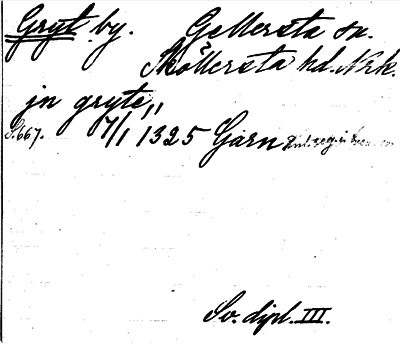 Gryt by. Gellersta sn.
Sköllersta hd. Nrk.
jn gryte„
S. 667. 17/1 1325 Garn
Sv. dipl. III.